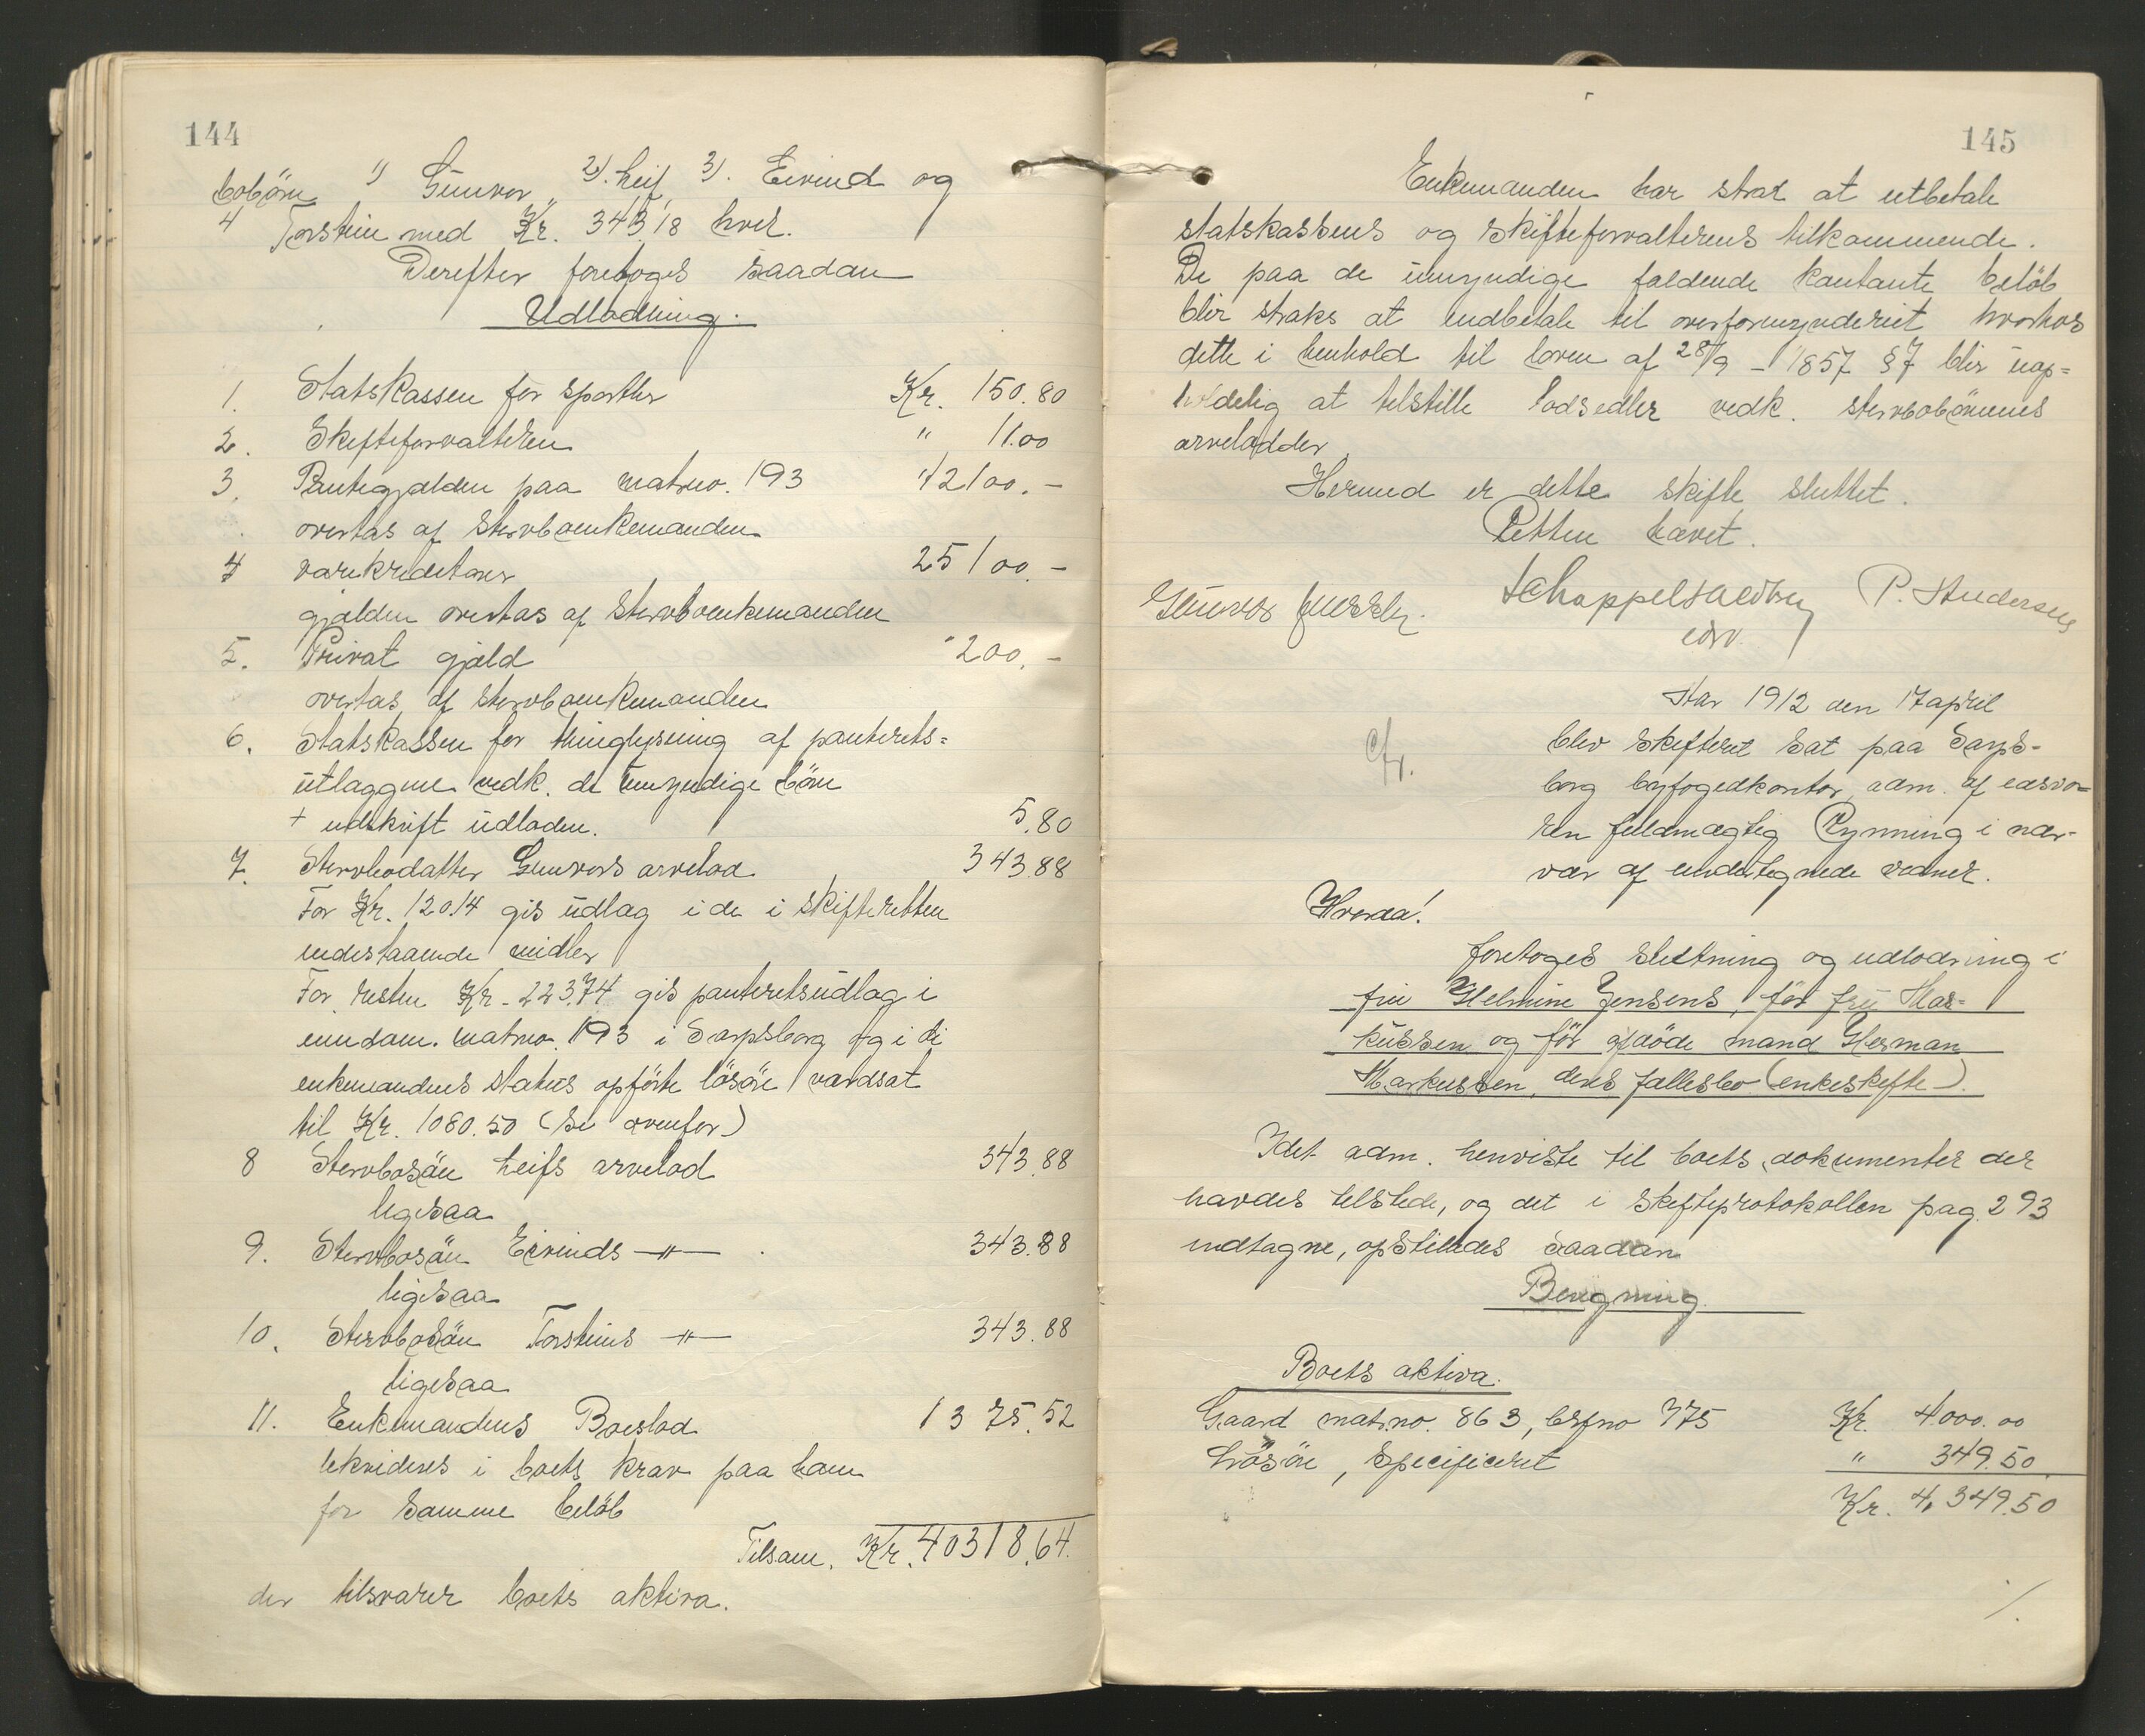 144
bobörn 1) Gunvor, 2). Leif, 3). Eivind og
4 Torstein med Kr. 343.18 hver.
Derefter foretoges saadan
Udlodning.
1. Statskassen for sportler Kr. 150.80
2. Skifteforvalteren " 11.00
3. Pantegjælden paa matrno. 193 "12100.-
overtas af stervboenkemanden
4 varekreditorer 25100.-
gjælden overtas af stervboenkemanden
5. Privat gjæld "200.-
overtas af stervboenkemanden
6. Statskassen for thinglysning af panterets-
utlæggene vedk. de umyndige börn
+ udskrift udloden. 5.80
7. Stervbodatter Gunvors arvelod 343.88
For Kr. 120.14 gis udlag i de i skifteretten
indestaaende midler
For resten Kr. 223.74 gis panteretsudlag i
eiendom. matrno. 193 i Sarpsborg og i de
enkemandens status opförte lösöre værdsat
til Kr. 1080.50 (se ovenfor)
8 Stervbosön Leifs arvelod 343.88
ligesaa
9. Stervbosön Eivinds —"— 343.88
ligesaa
10. Stervbosön Torsteins —"— 343.88
ligesaa
11. Enkemandens Boeslod 1375.52
likvideres i boets krav paa ham
for samme belöb
Tilsam. Kr. 40318.64.
der tilsvarer boets aktiva.
145
Enkemanden har strax at utbetale
statskassens og skifteforvalterens tilkommende.
De paa de umyndige faldende kontante belöb
blir straks at indbetale til overformynderiet hvorhos
dette i henhold til loven af 28/9 - 1857 §7 blir uop=
holdelig at tilstille lodsedler vedk. stervbobörnenes
arvelodder
Hermed er dette skifte sluttet.
Retten hævet.
P. Andersen
Aar 1912 den 17 april
blev skifteret sat paa Sarps-
borg byfogedkontor, adm. af edsvo=
ren fuldmægtig Rynning i nær-
vær af undertegnede vidner.
cfr.
Hvorda!
foretoges slutning og udlodning i
fru Helmine Jensens, för fru Mar-
kussen og för afdöde mand Herman
Markussen, deres fællesbo (enkeskifte-).
Idet adm. henviste til boets dokumenter der
havdes tilstede, og det i skifteprotokollen pag. 293
indtagne, opstilledes saadan
Beregning
Boets aktiva.
Gaard matr.no. 863, brfno 775 Kr. 4.000.00
Lösöre, specificeret " 349.50
Kr. 4,349.50
./.